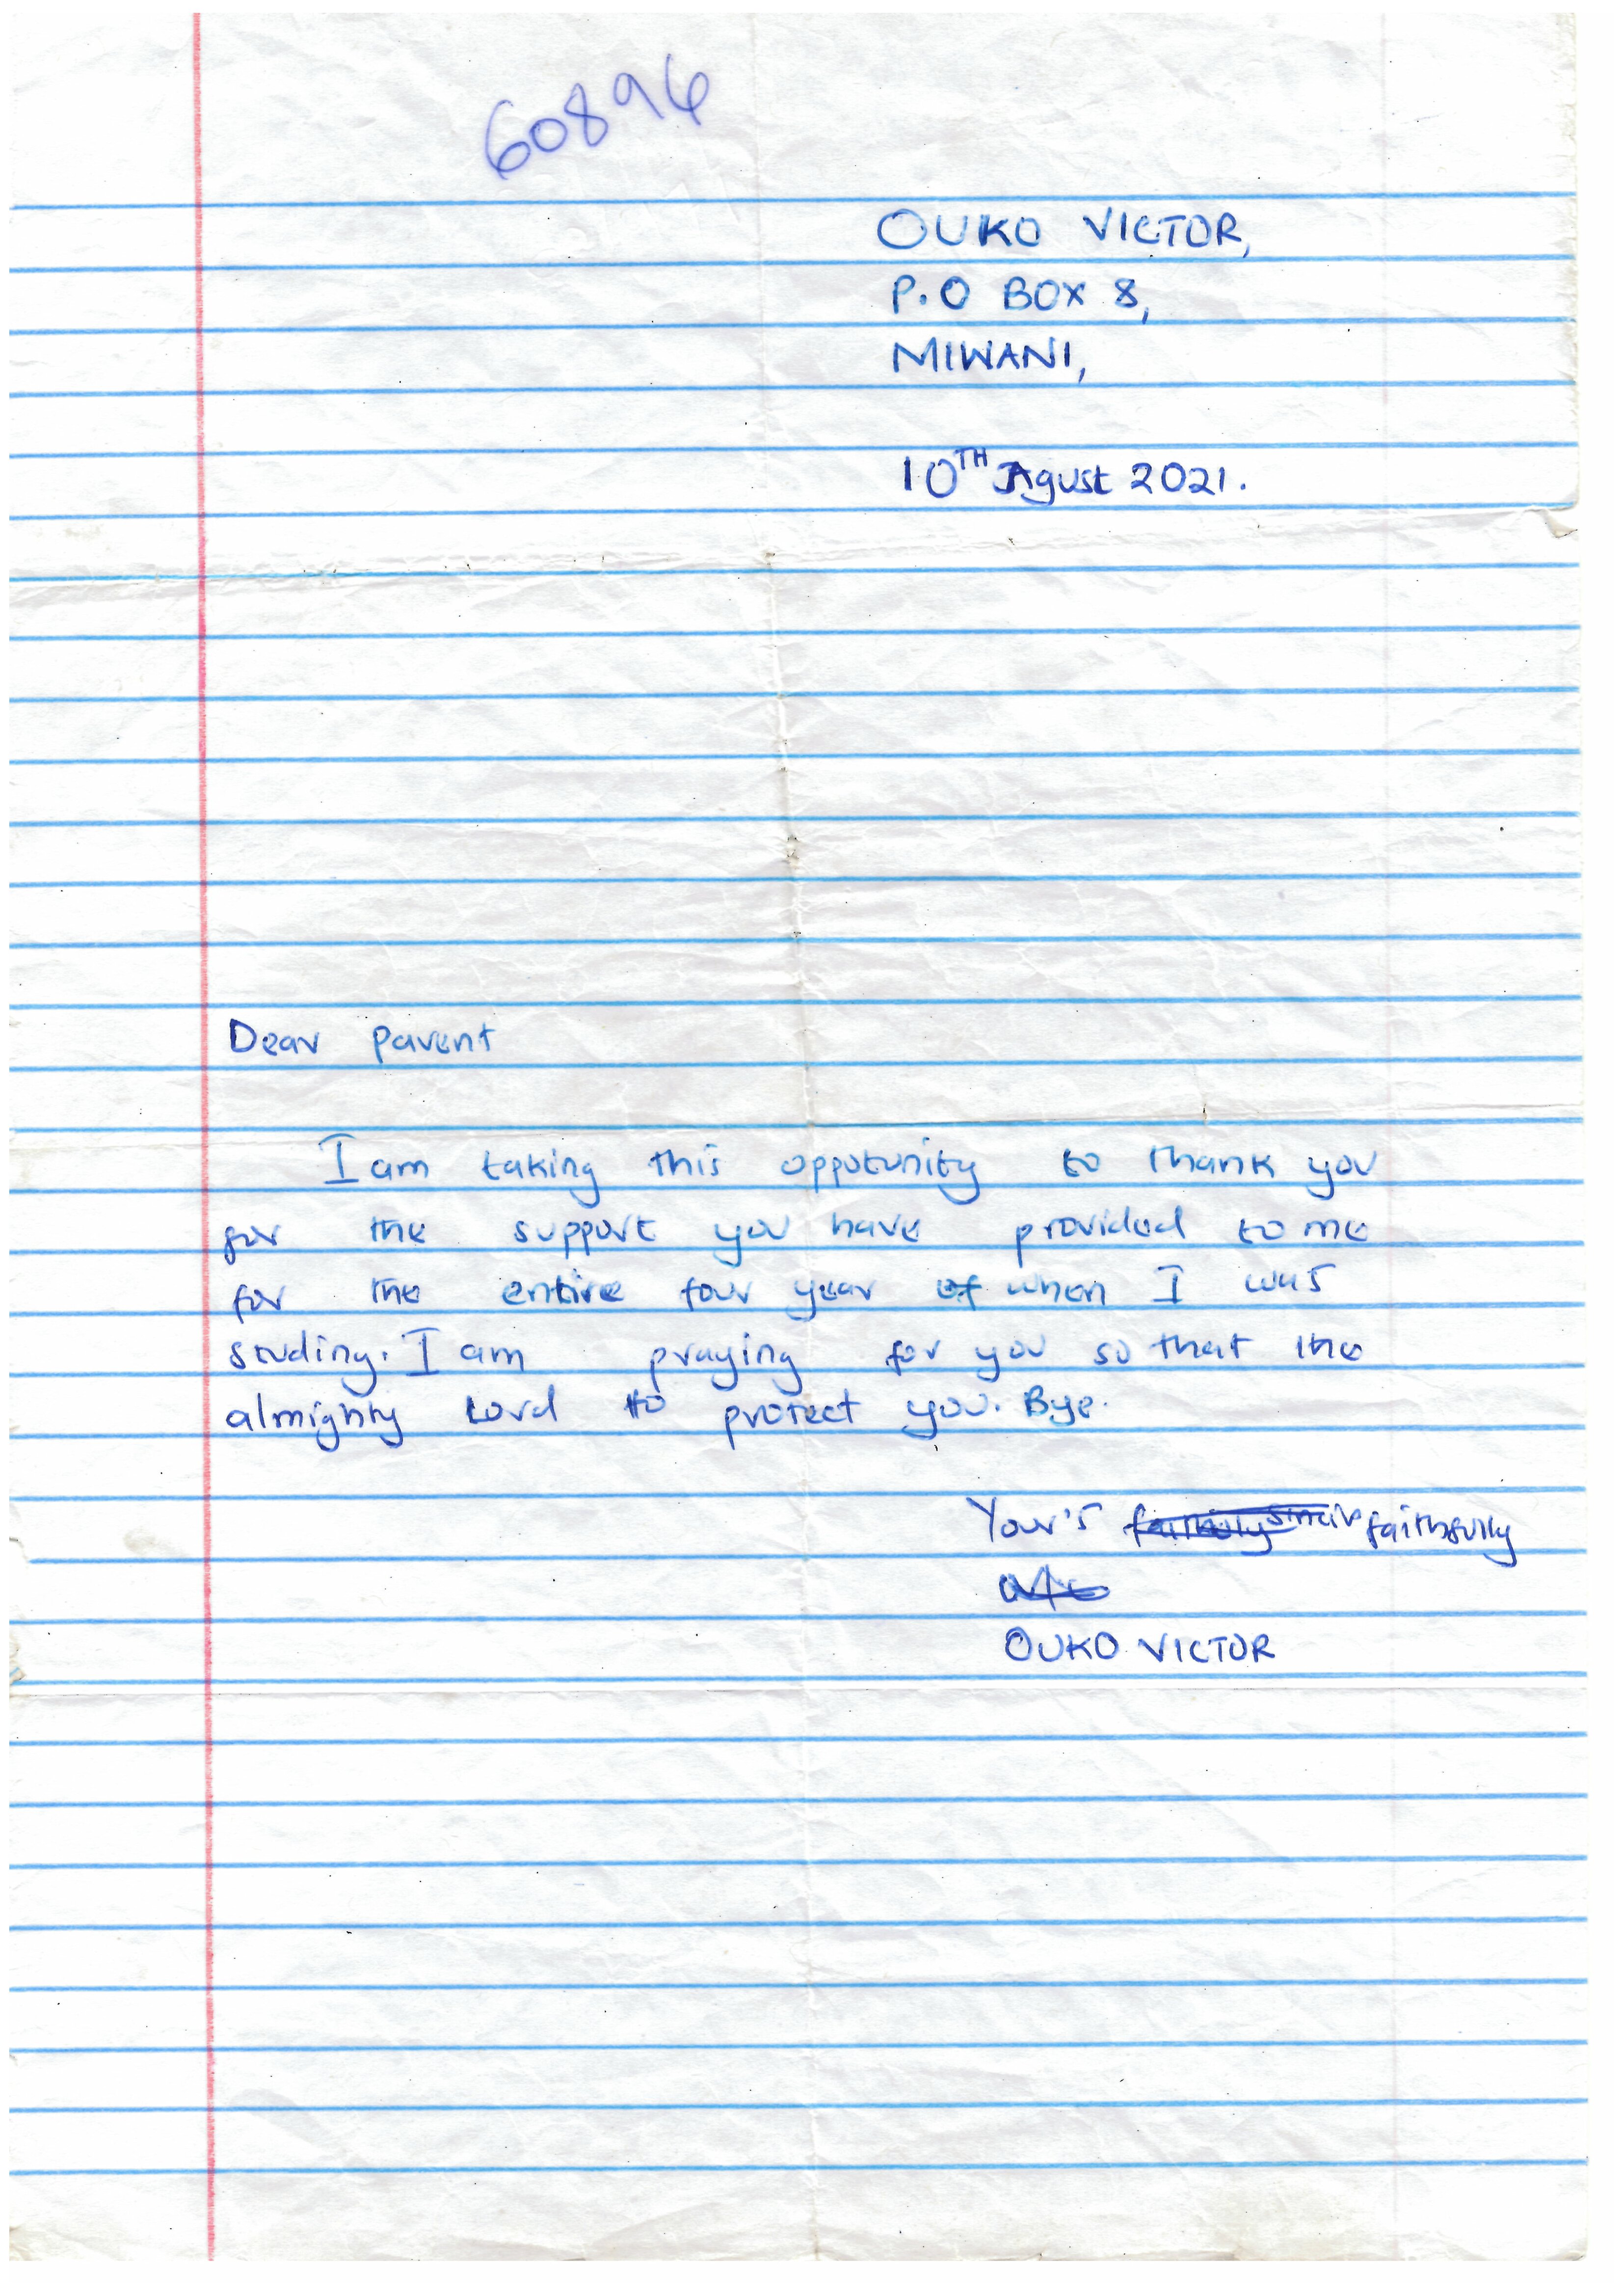 60896
OUKO VICTOR,
P.O BOX 8,
MIWANI,
10TH Agust 2021.
Dear parent
I am taking this oppotunity to thank you
for the support you have provided to me
for the entire four year of when I was
studing. I am praying for you so that the
almighty Lord to protect you. Bye.
Your's faithfully
OUKO VICTOR